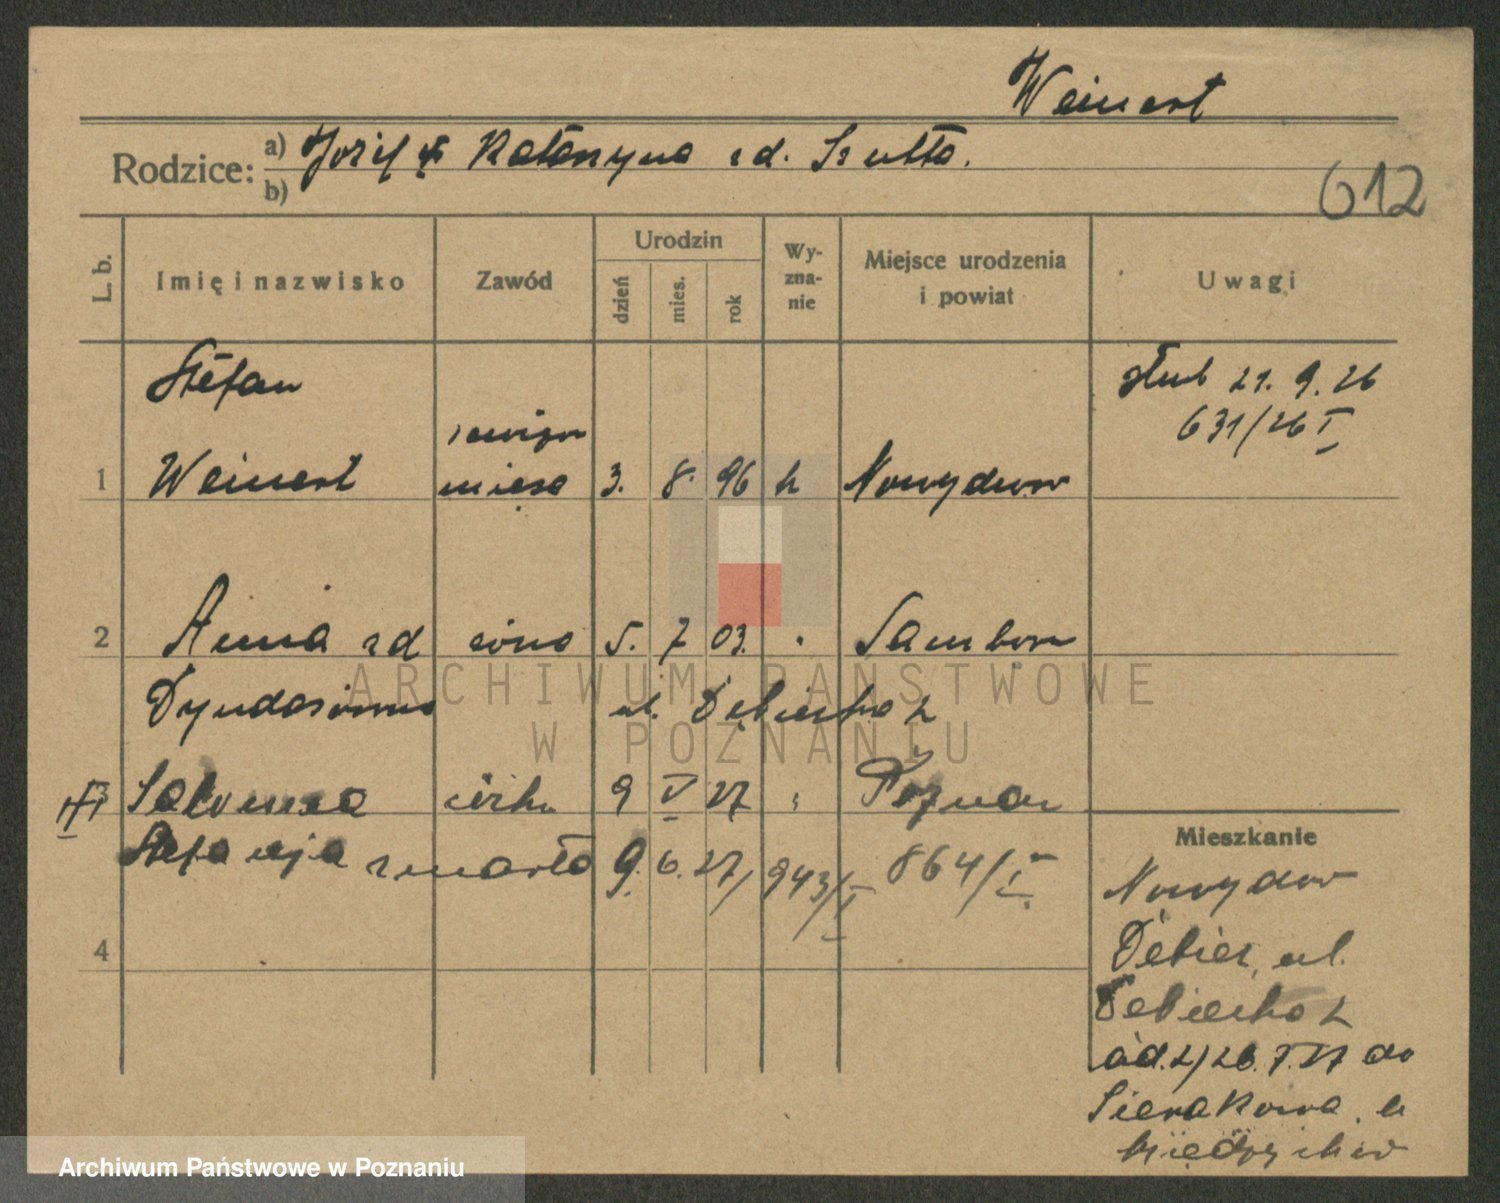 Weinert
Rodzice: a) Józef & Katarzyna zd. Szutta.
b)
612
L. b.
Imię i nazwisko
Zawód
Urodzin
dzień
mies.
rok
Wy-
zna-
nie
Miejsce urodzenia
i powiat
Uwagi
Stefan
ślub 21. 9. 26
631/26 I
1 Weinert mięsa 3. 8. 96 k Nowydwór
2 Anna zd żona 5. 7 03. " Sambor
ul. Dębiecka 2
ARCHIWUM PAŃSTWOWE
W POZNANIU
3 Salomea córka 9 V 27 " Poznań
Stefanja zmarła 9. 6. 27/ 943/I 864/I
Mieszkanie
Nowydwór
4
Dębiec, ul.
Dębiecka 2
od. 2/26. 7. 27 do
Sierakowa,
Międzychów
Archiwum Państwowe w Poznaniu